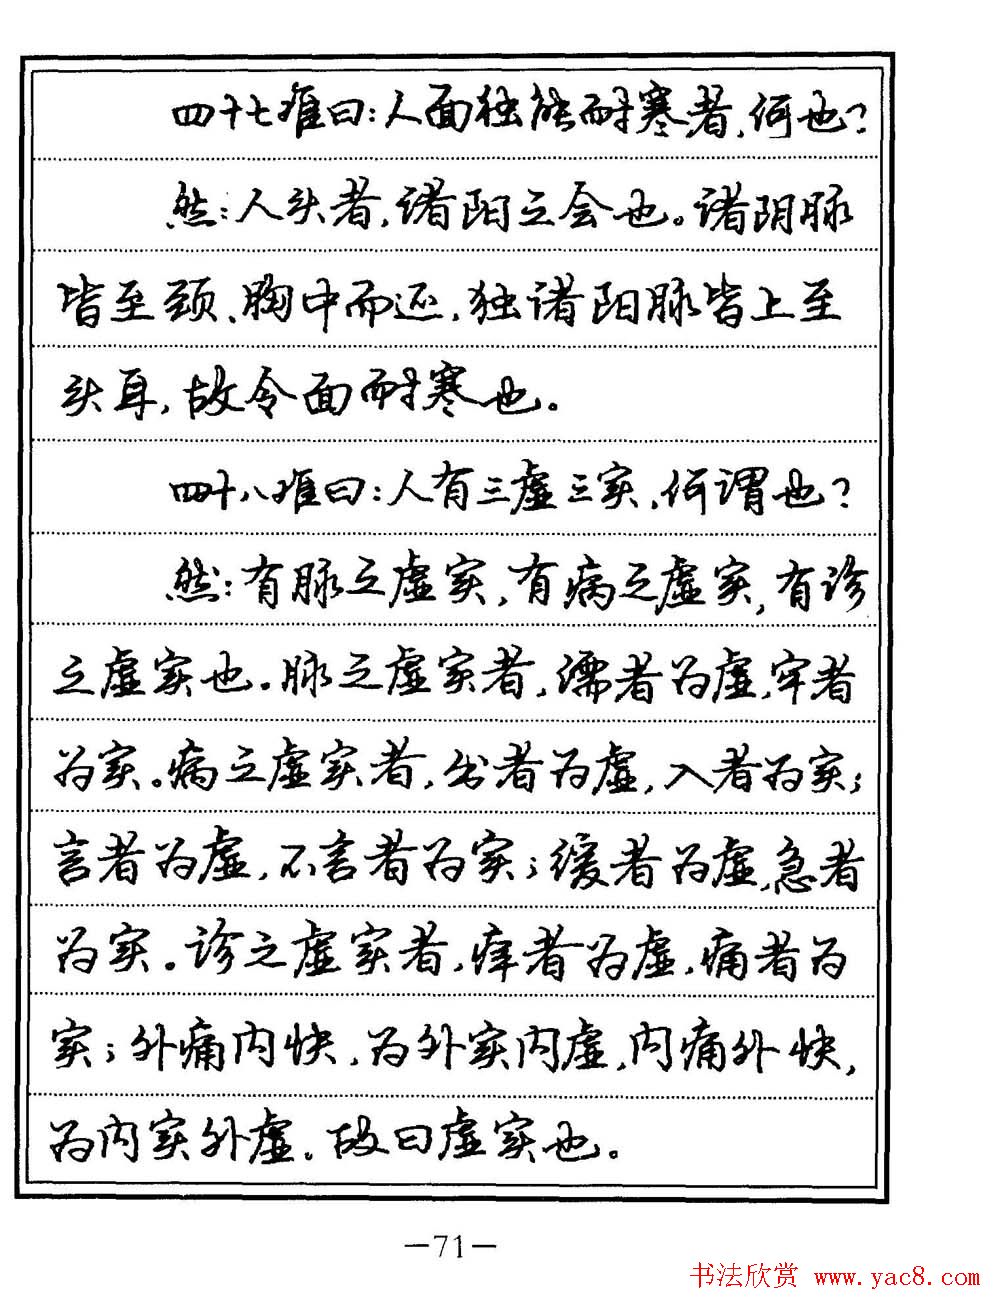 四十七难曰:人面独能耐寒者,何也?
然:人头者,诸阳之会也。诸阴脉
皆至颈、胸中而还,独诸阳脉皆上至
头耳,故令面耐寒也。
四十八难曰:人有三虚三实,何谓也?
然:有脉之虚实,有病之虚实,有诊
之虚实也。脉之虚实者,濡者为虚,牢者
为实。病之虚实者,出者为虚,入者为实;
言者为虚,不言者为实;缓者为虚,急者
为实。诊之虚实者,痒者为虚,痛者为
实;外痛内快,为外实内虚,内痛外快,
为内实外虚。故曰虚实也。
—71—
书法欣赏 www.yac8.com